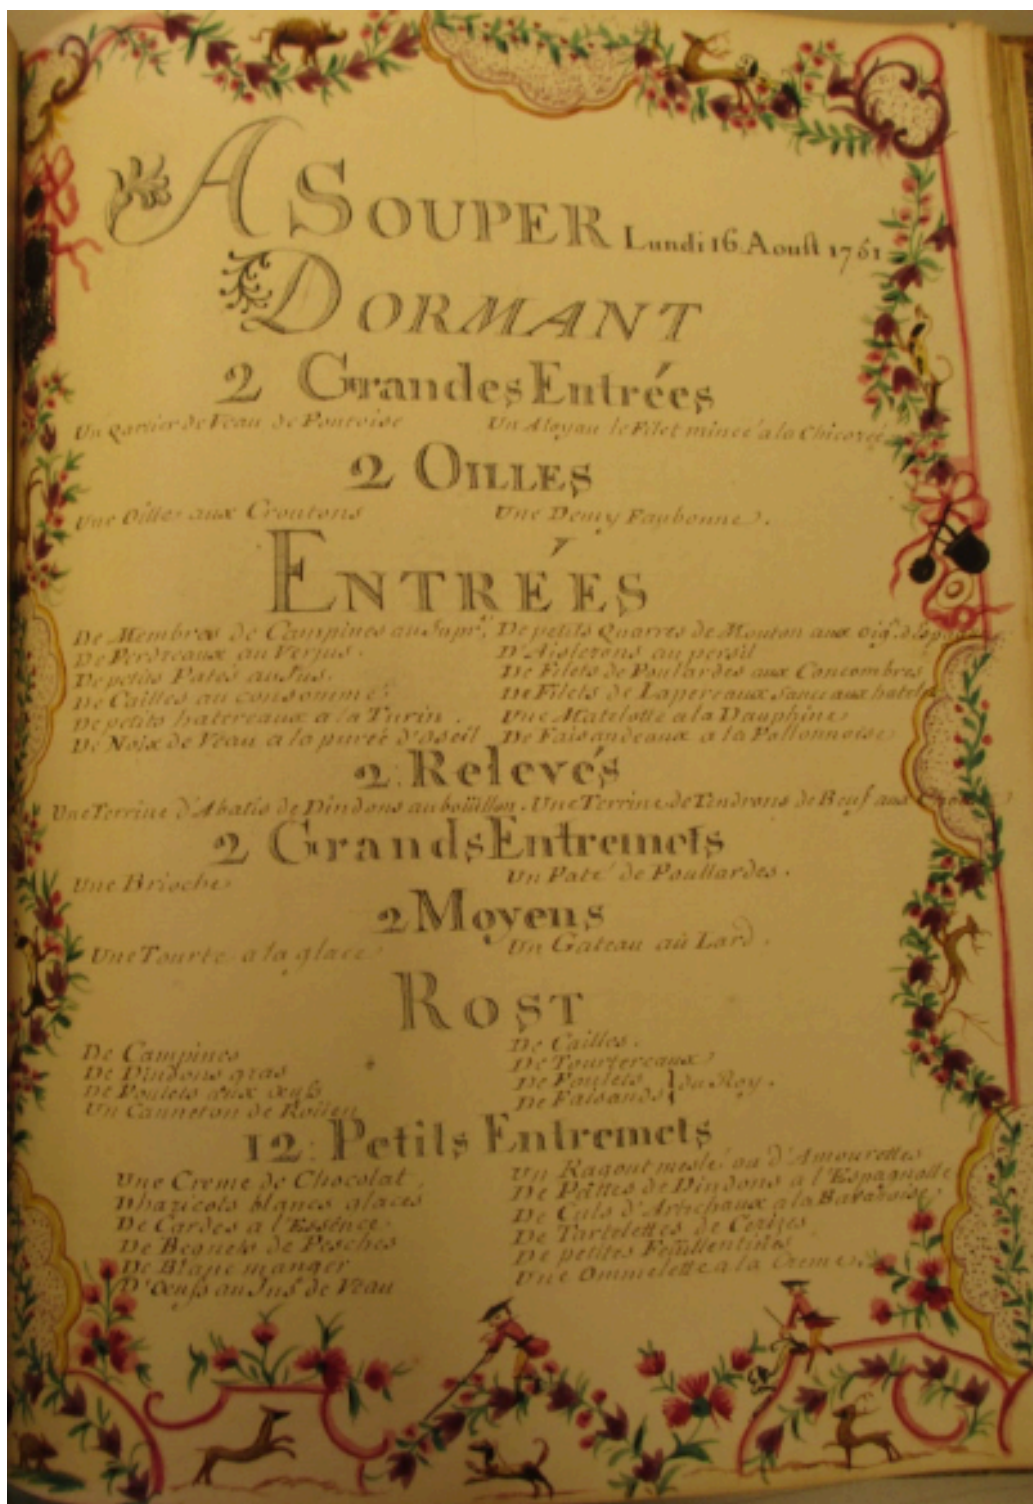 A SOUPER Lundi 16. Aoust 1751
DORMANT
2 Grandes Entrées
Un Qartier de Veau de Pontoise
Un Aloyau le Filet mincé a la Chicorée
2 OILLES
Une Oille aux Croutons
Une Demy Faubonne.
ENTRÉES
De Membres de Campines au Supr.
De Perdreaux au Verjus.
De petits Patés au Jus.
De Cailles au consommé
De petits hatereaux a la Turin.
De Noix de Veau a la purée d'oseil
De petits Quarrés de Mouton aux oig.
D'Aislerons au persil
De Filets de Poulardes aux Concombres
De Filets de Lapereaux Sauce aux hatelet
Une Matelotte a la Dauphine
De Faisandeaux a la Pollonnoise
2. Relevés
Une Terrine d'Abatis de Dindons au boüillon. Une Terrine de Tendrons de Beuf aux
2 Grands Entremets
Une Brioche
Un Paté de Poullardes.
2 Moyens
Une Tourte a la glace
Un Gateau aû Lard.
ROST
De Campines
De Dindons gras
De Poulets aux œufs
Un Canneton de Roüen
De Cailles.
De Tourtereaux
De Poulets } du Roy.
De Faisands
12: Petits Entremets
Une Creme de Chocolat
Dharicots blancs glacés
De Cardes a l'Essence
De Begnets de Pesches
De Blanc manger
D'œufs au Jus de Veau
Un Ragout meslé ou d'Amourettes
De Pattes de Dindons a l'Espagnolle
De Culs d'Artichaux a la Bavaroise
De Tartelettes de Cerizes
De petites Feüillentines
Une Ommelette a la Creme.